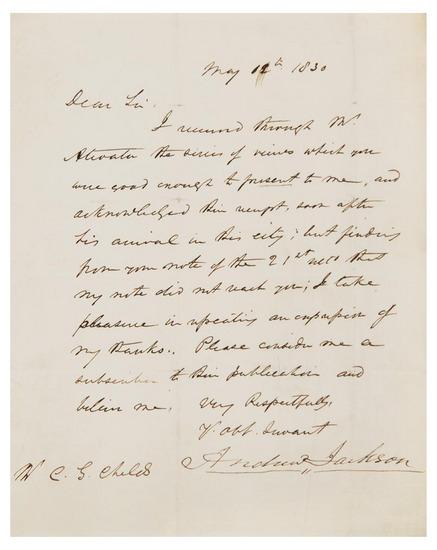 May 12th 1830
Dear Sir.
I received through Mr
Atwater the series of views which you
were good enough to present to me, and
acknowledged their receipt, soon after
his arrival in this city; but finding
from your note of the 21st that
my note did not reach you; I take
pleasure in repeating an expression of
my thanks. Please consider me a
subscriber to their publication and
believe me,
Very Respectfully,
Yr obt. Servant
Andrew Jackson
Mr C. G. Childs